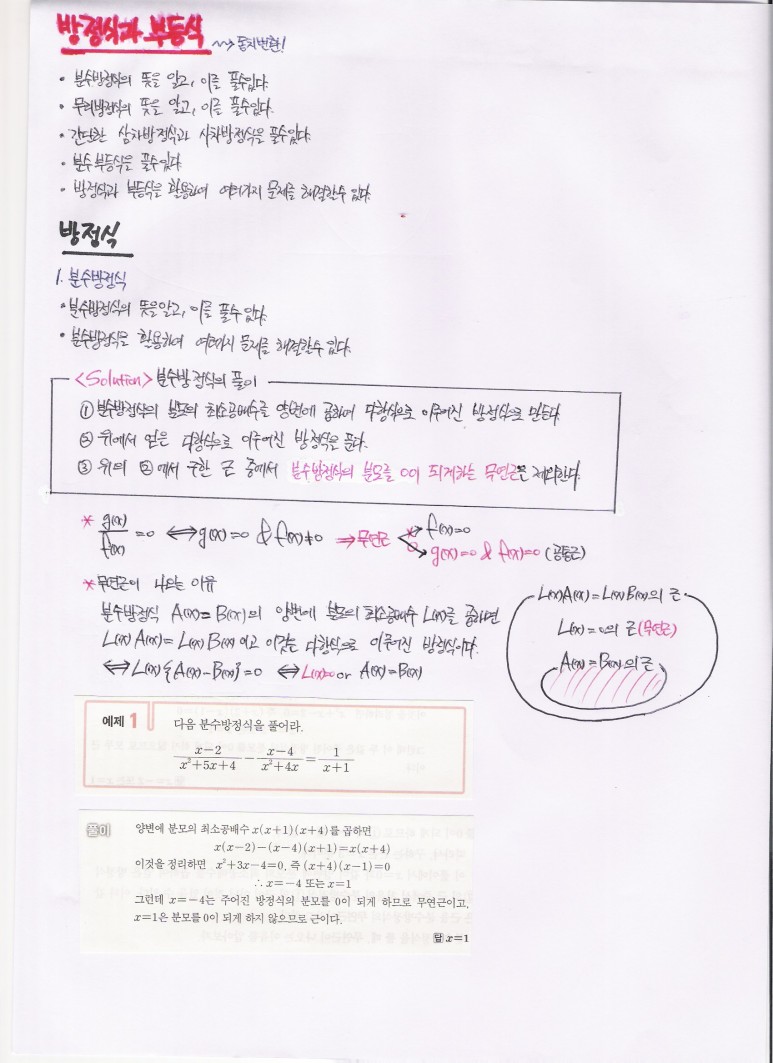 방정식과 부등식 ~> 동치변환!
• 분수방정식의 뜻을 알고, 이를 풀수있다.
• 무리방정식의 뜻을 알고, 이를 풀수있다.
• 간단한 삼차방정식과 사차방정식을 풀수있다.
• 분수부등식을 풀수있다.
• 방정식과 부등식을 활용하여 여러가지 문제를 해결할수 있다.
방정식
1. 분수방정식
• 분수방정식의 뜻을알고, 이를 풀수 있다.
• 분수방정식을 활용하여 여러가지 문제를 해결할수 있다.
<Solution> 분수방정식의 풀이
① 분수방정식의 분모의 최소공배수를 양변에 곱하여 다항식으로 이루어진 방정식으로 만든다
② 위에서 얻은 다항식으로 이루어진 방정식을 푼다.
③ 위의 ②에서 구한 근 중에서 분수방정식의 분모를 0이 되게하는 무연근은 제외한다.
* g(x)/f(x) = 0 ⟺ g(x)=0 & f(x)≠0 ⇒ 무연근 f(x)=0
g(x)=0 & f(x)=0 (공통근)
* 무연근이 나오는 이유
분수방정식 A(x)=B(x)의 양변에 분모의 최소공배수 L(x)를 곱하면
L(x)A(x)=L(x)B(x) 이고 이것은 다항식으로 이루어진 방정식이다.
⟺ L(x){A(x)-B(x)}=0 ⟺ L(x)=0 or A(x)=B(x)
L(x)A(x)=L(x)B(x)의 근
L(x)=0의 근(무연근)
A(x)=B(x)의근
예제 1 다음 분수방정식을 풀어라.
(x-2)/(x²+5x+4) - (x-4)/(x²+4x) = 1/(x+1)
풀이 양변에 분모의 최소공배수 x(x+1)(x+4)를 곱하면
x(x-2)-(x-4)(x+1)=x(x+4)
이것을 정리하면 x²+3x-4=0, 즉 (x+4)(x-1)=0
∴ x=-4 또는 x=1
그런데 x=-4는 주어진 방정식의 분모를 0이 되게 하므로 무연근이고,
x=1은 분모를 0이 되게 하지 않으므로 근이다.
답 x=1